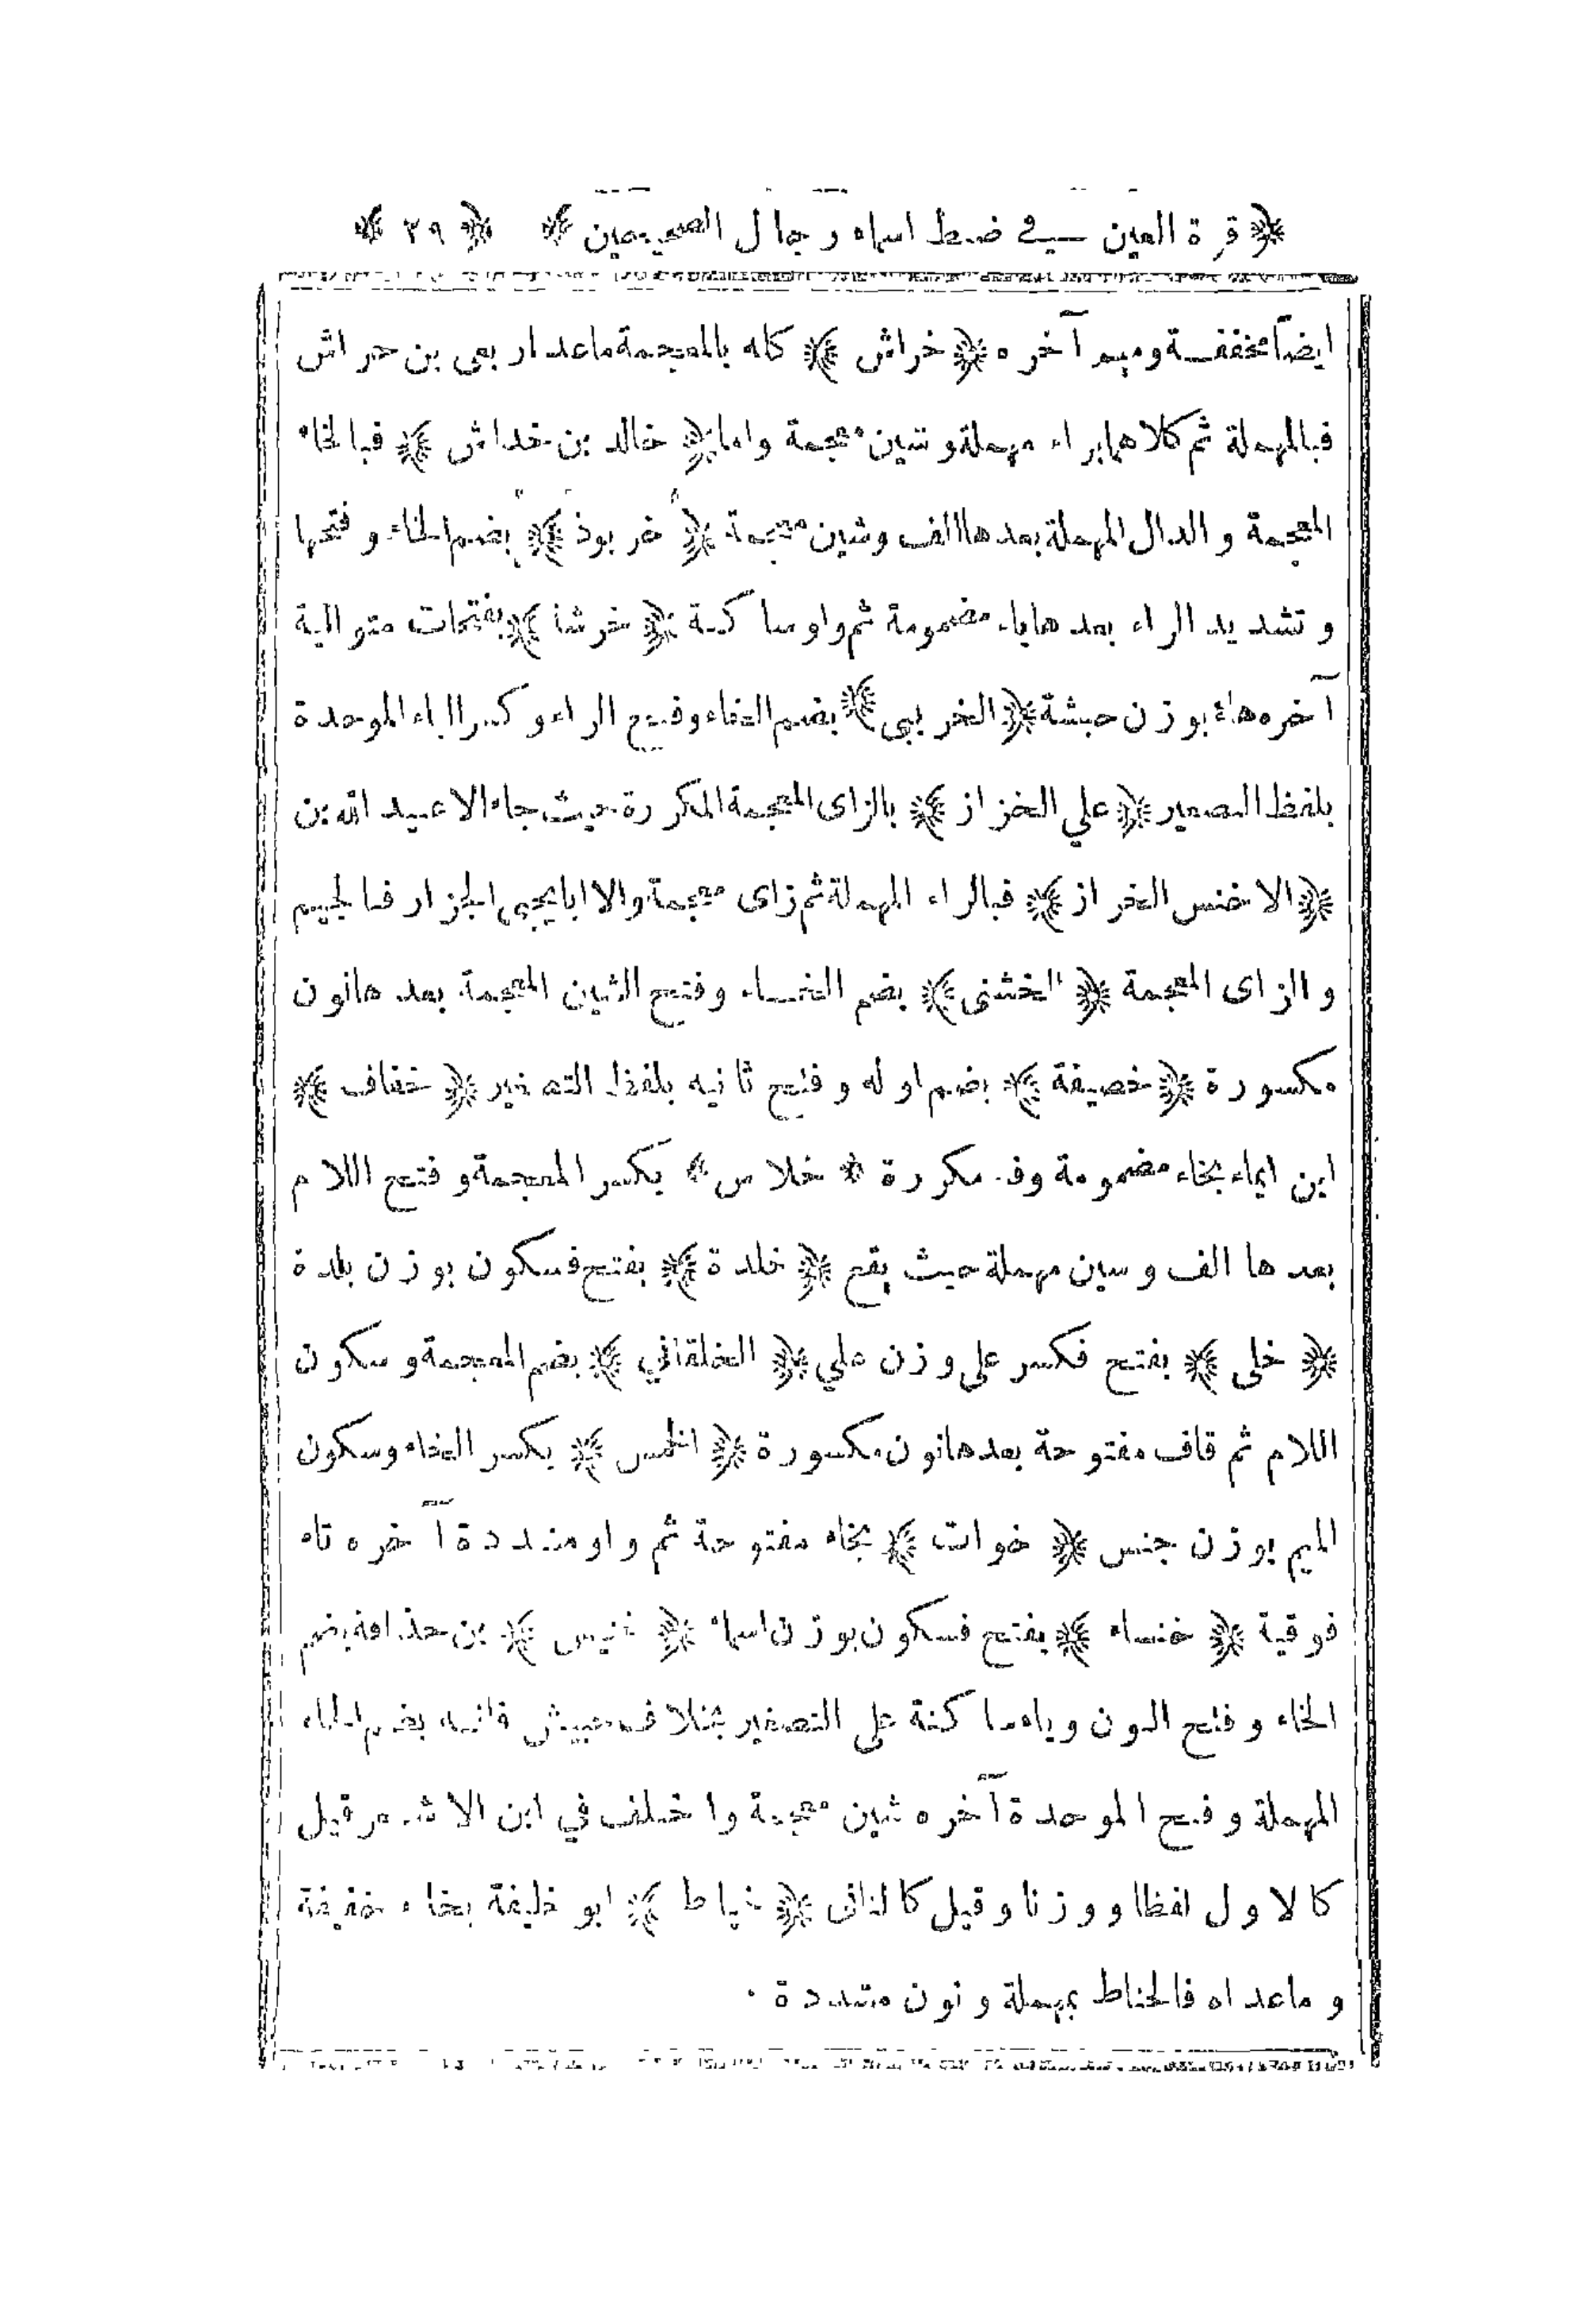 ﴿ قرة العين في ضبط اسماء رجال الصحيحين ﴾ ﴿ ٢٩ ﴾
ايضاً مخففة وميم آخره ﴿ خراش ﴾ كله بالمعجمة ماعدا ربعى بن حراش
فبالمهملة ثم كلاهما براء مهملة وشين معجمة واما ﴿ خالد بن خداش ﴾ فبالخاء
المعجمة والدال المهملة بعدها الف وشين معجمة ﴿ خربوذ ﴾ بضم الخاء وفتحها
وتشديد الراء بعدها باء مضمومة ثم واو ساكنة ﴿ خرشة ﴾ بفتحات متوالية
آخره هاء بوزن حبشة ﴿ الخريبى ﴾ بضم الخاء وفتح الراء وكسر الباء الموحدة
بلفظ التصغير ﴿ علي الخزاز ﴾ بالزاى المعجمة المكررة حيث جاء الا عبيد الله بن
﴿ الاخنس الخراز ﴾ فبالراء المهملة ثم زاى معجمة والا ابا يحيى الجزار فبالجيم
والزاى المعجمة ﴿ الخشنى ﴾ بضم الخاء وفتح الشين المعجمة بعدها نون
مكسورة ﴿ خصيفة ﴾ بضم اوله وفتح ثانيه بلفظ التصغير ﴿ خفاف ﴾
ابن ايماء بخاء مضمومة وفاء مكررة ﴿ خلاس ﴾ بكسر المعجمة وفتح اللام
بعدها الف وسين مهملة حيث يقع ﴿ خلدة ﴾ بفتح فسكون بوزن بلدة
﴿ خلى ﴾ بفتح فكسر على وزن علي ﴿ الخلقاني ﴾ بضم المعجمة وسكون
اللام ثم قاف مفتوحة بعدها نون مكسورة ﴿ الخمس ﴾ بكسر الخاء وسكون
الميم بوزن جنس ﴿ خوات ﴾ بخاء مفتوحة ثم واو مشددة آخره تاء
فوقية ﴿ خنساء ﴾ بفتح فسكون بوزن اسماء ﴿ خنيس ﴾ بن حذافة بضم
الخاء وفتح النون وياء ساكنة على التصغير بخلاف حبيش فانه بضم الحاء
المهملة وفتح الموحدة آخره شين معجمة واختلف في ابن الاشعر قيل
كالاول لفظا ووزنا وقيل كالثانى ﴿ خياط ﴾ ابو خليفة بخاء خفيفة
وماعداه فالحناط بمهملة ونون مشددة ٠